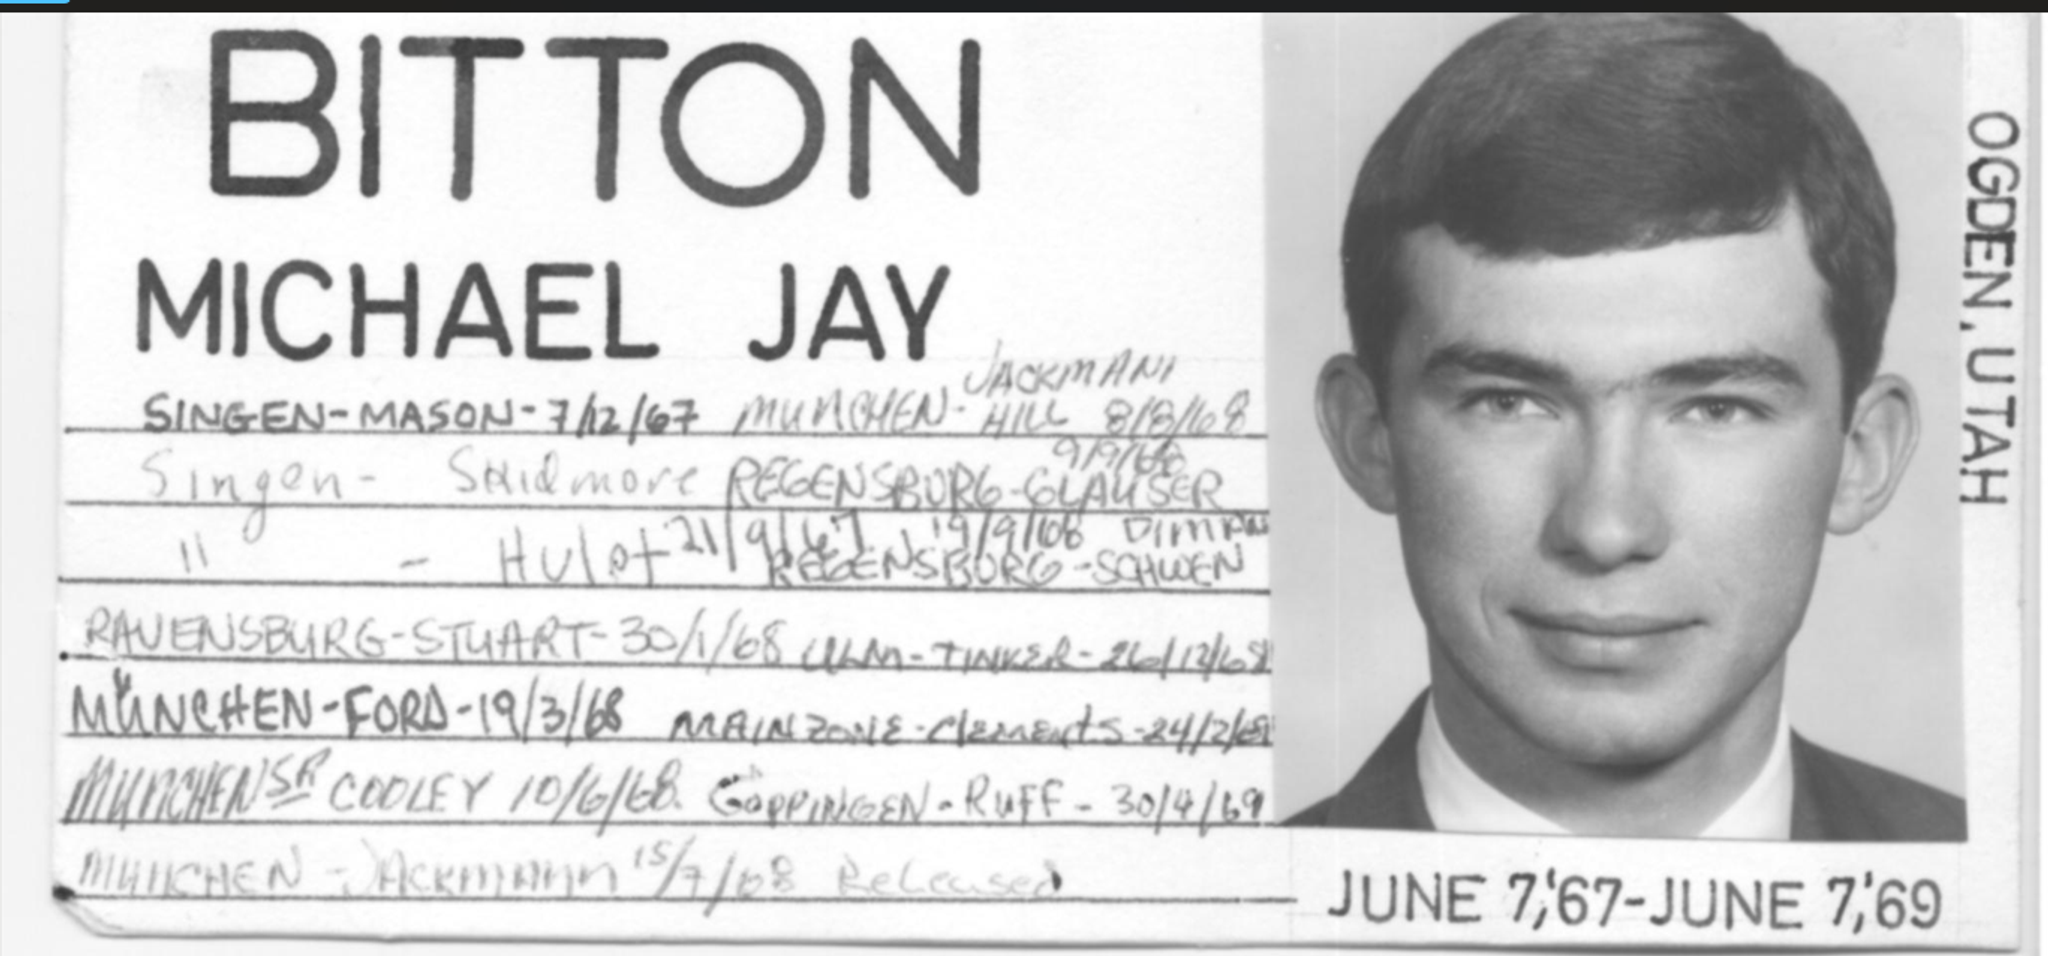 BITTON
MICHAEL JAY
SINGEN-MASON-7/12/67
Singen- Skidmore
" - Hulet 21/9/67
RAVENSBURG-STUART-30/1/68
MÜNCHEN-FORD-19/3/68
MUNCHEN SR COOLEY 10/6/68.
MUNCHEN-JACKMANN 15/7/68 Released
JACKMAN
MUNCHEN- HILL 8/8/68
9/9/68
REGENSBURG-GLAUSER
19/9/68
REGENSBURG-SCHWEN
ULM-TINKER-26/12/68
MAINZONE-Clements-24/2/69
GÖPPINGEN-RUFF-30/4/69
OGDEN, UTAH
JUNE 7,'67-JUNE 7,'69